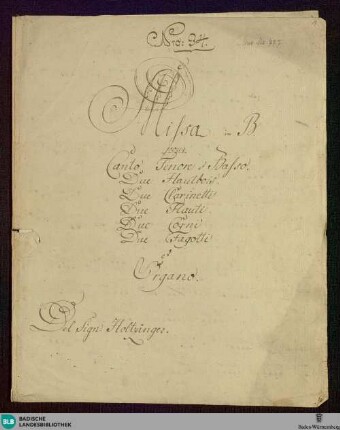 Missa in B
per
Canto Tenore è Basso.
Due Hautbois
Due Clarinetti
Due Flauti
Due Corni
Due Fagotti
ed
Organo.
Del Sign: Holtzinger.
BLB
BADISCHE
LANDESBIBLIOTHEK
Baden-Württemberg